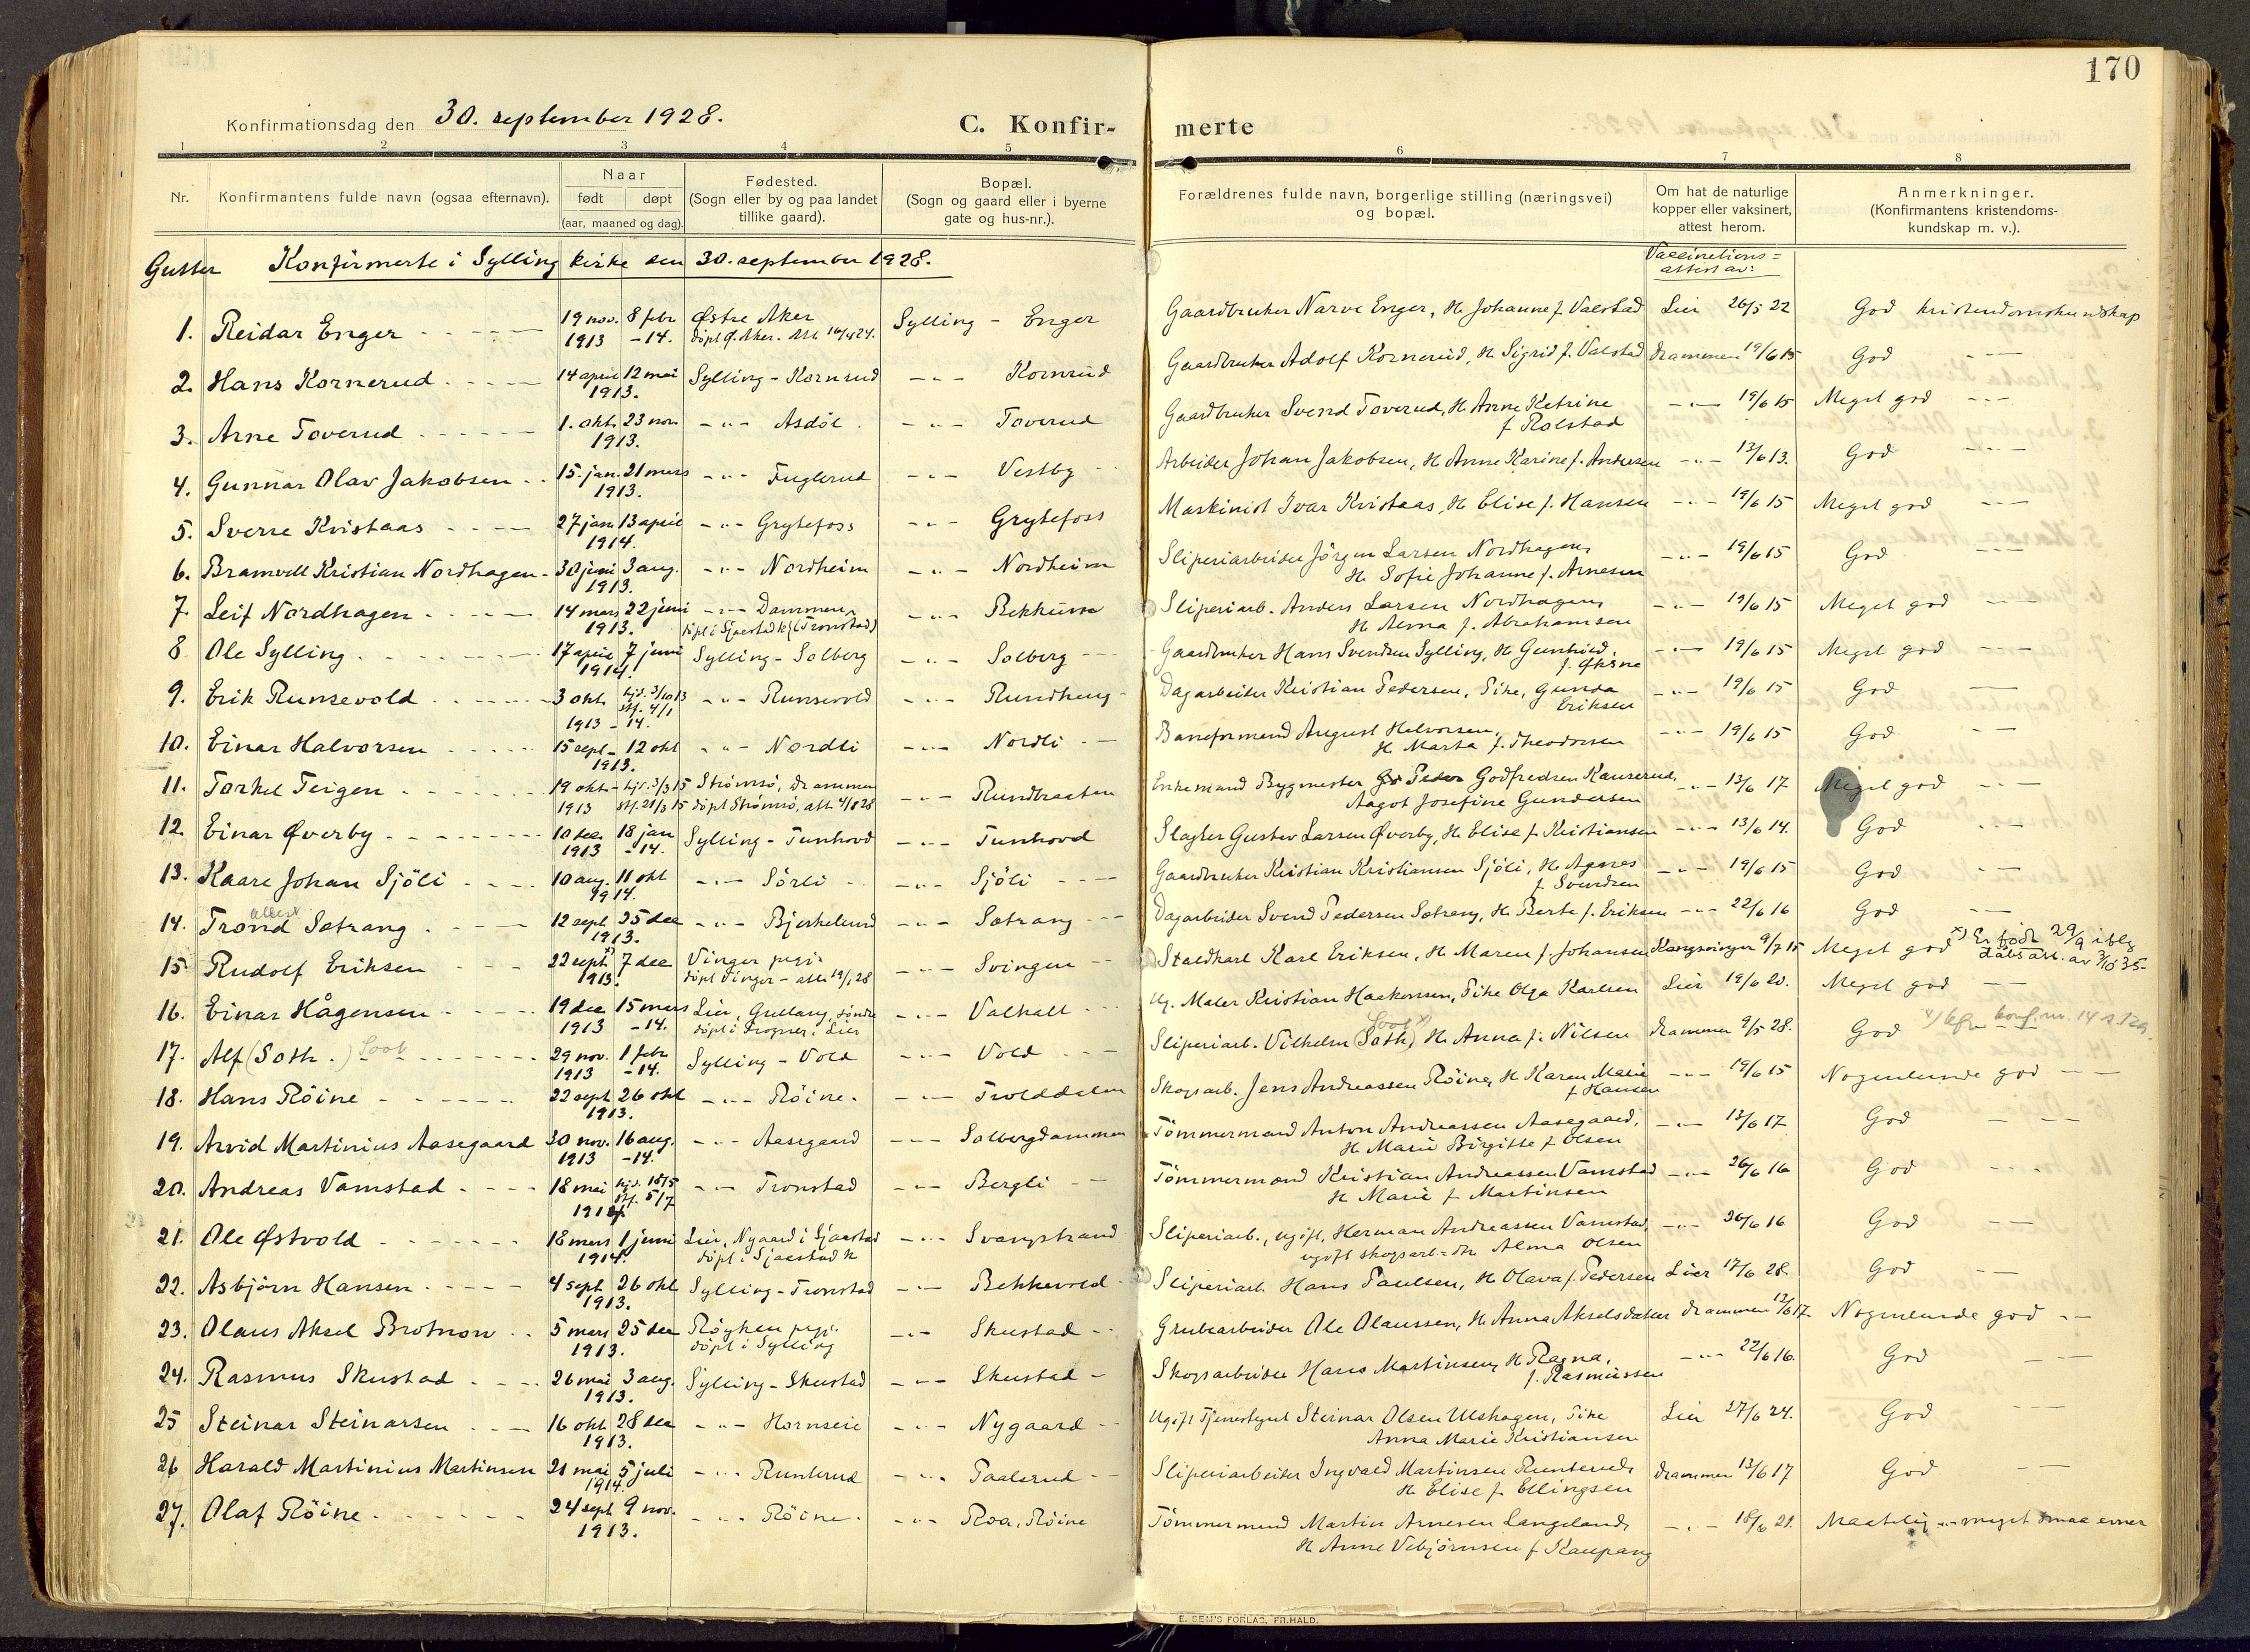 170
Konfirmationsdag den 30. september 1928.
C. Konfir-
merte
1 2 3 4 5 6 7 8
Nr.
Konfirmantens fulde navn (ogsaa efternavn).
Naar
født døpt
(aar, maaned og dag).
Fødested.
(Sogn eller by og paa landet
tillike gaard).
Bopæl.
(Sogn og gaard eller i byerne
gate og hus-nr.).
Forældrenes fulde navn, borgerlige stilling (næringsvei)
og bopæl.
Om hat de naturlige
kopper eller vaksinert,
attest herom.
Anmerkninger.
(Konfirmantens kristendoms-
kundskap m. v.).
Gutter Konfirmerte i Sylling kirke den 30. september 1928.
Vaccinations=
attest av:
1. Reidar Enger 19 nov. 8 febr Østre Aker Sylling - Enger Gaardbruker Narve Enger, H. Johanne f. Valstad Lier 26/5 22 God kristendomskundskap
1913 -14. döpt Ø. Aker.
2. Hans Kornerud 14 april 12 mai Sylling - Kornrud -"- Kornrud Gaardbruker Adolf Kornerud, H. Sigrid f. Valstad Drammen 19/6 15 God
1913.
3. Arne Toverud 1. okt. 23 nov. -"- Asdöl -"- Toverud Gaardbruker Svend Toverud, H. Anne Katrine -"- 19/6 15 Meget god
1913. f. Rolstad
4. Gunnar Olav Jakobsen 15. jan. 21 mars -"- Fuglerud -"- Vestby Arbeider Johan Jakobsen, H. Anne Karine f. Andersen -"- 13/6 13. God
1913.
5. Sverre Kvistaas 27 jan. 13 april -"- Grytefoss -"- Grytefoss Maskinist Ivar Kvistaas, H. Elise f. Hansen -"- 19/6 15 Meget god
1914.
6. Bramvell Kristian Nordhagen 30 juni 3 aug. -"- Nordheim -"- Nordheim Sliperiarbeider Jörgen Larsen Nordhagen, -"- 19/6 15 God
1913. H. Sofie Johanne f. Arnesen
7. Leif Nordhagen 14 mars 22 juni -"- Dammen -"- Sliperiarb. Anders Larsen Nordhagen, -"- 19/6 15 Meget god
1913. döpt i Sjaastad k (Tronstad) H. Alma f. Abrahamsen
8 Ole Sylling 17 april 7 juni Sylling - Solberg -"- Solberg Gaardbruker Hans Svendsen Sylling, H. Gunhild. -"- 19/6 15 Meget god
1914.
9. Erik Runsevold 3 okt. hjd. 3/10 13 -"- Runsevold -"- Rundhaug Dagarbeider Kristian Pedersen, Pike, Gunda -"- 19/6 15 God
stf. 4/1
1913 - 14. Eriksen
10. Einar Halvorsen 15 sept - 12 okt -"- Nordli -"- Nordli Baneformand August Halvorsen, -"- 19/6 15 God
1913. H. Marta f. Theodorsen
11. Torkel Teigen 19 okt - hjd. 3/3 15 Strömsö, Drammen -"- Rundbraaten Enkemand Bygmester Peder Godfredsen Kanserud, -"- 13/6 17 Meget god
1913 stf. 21/3 15 döpt Strömsö, att. 4/8 28 Aagot Josefine Gundersen
12. Einar Øverby 10 dec 18 jan Sylling - Tunhovd -"- Tunhovd Slagter Gustav Larsen Øverby, H. Elise f. Kristiansen -"- 13/6 14. God
1913 -14.
13. Kaare Johan Sjöli 10 aug. 11 okt -"- Sörli -"- Sjöli Gaardbruker Kristian Kristiansen Sjöli, H. Agnes -"- 19/6 15 God
1914. f. Svendsen
Albert
14. Trond Sætrang 12 sept 25 dec -"- Bjerkelund -"- Sætrang Dagarbeider Svend Pedersen Sætrang, H. Berte f. Eriksen -"- 22/6 16 God
1913.
15 Rudolf Eriksen 22 sept x) 7 dec Vinger pgj. -"- Svingen Staldkarl Karl Eriksen, H. Maren f. Johansen Kongsvinger 9/7 15 Meget god x) Er født 29/9 iflg
1913. döpt Vinger - att. 19/1 28 dåbsatt. av 3/10 35-
16. Einar Hågensen 19 dec 15 mars Lier, Gullaug, söndre -"- Valhall Ug. Maler Kristian Haakonsen, Pike Olga Karlsen Lier 19/6 20. Meget god
1913 -14. döpt i Frogner, Lier
17. Alf (Soth.) Soot 29 nov. 1 febr Sylling - Vold -"- Vold Sliperiarb. Vilhelm (Soth) Soot x) H. Anna f. Nilsen Drammen 9/5 28. God x) konf. nr. 14 s. 129
1913 -14.
18. Hans Röine 22 sept 26 okt -"- Röine. -"- Trolddalen Skogsarb. Jens Andreassen Röine, H. Karen Marie -"- 19/6 15 Nogenlunde god
1913. f. Hansen
19. Arvid Martinius Aasegaard 30 nov. 16 aug. -"- Aasegaard -"- Solbergdammen Tömmermand Anton Andreassen Aasegaard, -"- 13/6 17 God
1913 -14. H. Marie Birgitte f. Olsen
20. Andreas Vamstad 18 mai hjd. 18/5 -"- Tronstad -"- Bergli Tömmermand Kristian Andreassen Vamstad -"- 26/6 16 God
stf. 5/7
1914 H. Marie f. Martinsen
21. Ole Østvold 18 mars 1 juni Lier, Nygaard i Sjaastad -"- Svangstrand Sliperiarb., ugift, Herman Andreassen Vamstad, -"- 26/6 16 God
1914. döpt i Sjaastad k ugift skogsarb.= dtr. Alma Olsen
22. Asbjörn Hansen 4 sept 26 okt Sylling - Tronstad -"- Bekkevold Sliperiarb. Hans Paulsen, H. Olava f. Pedersen Lier 17/6 28. God
1913.
23. Olaus Aksel Brotnow 5 mars 25 dec Röyken pgj. -"- Skustad Grubearbeider Ole Olaussen, H. Anna Akselsdatter Drammen 13/6 17 Nogenlunde god
1913. döpt i Sylling
24. Rasmus Skustad 26 mai 3 aug. Sylling - Skustad -"- Skustad Skogsarbeider Hans Martinsen, H. Ragna, -"- 22/6 16. God
1913. f. Rasmussen
25 Steinar Steinarsen 16 okt 28 dec -"- Hornseie -"- Nygaard Ugift Tjenestegut Steinar Olsen Ulshagen, Pike Lier 27/6 24. God
1913. Anna Marie Kristiansen
26 Harald Martinius Martinsen 21 mai 5 juli -"- Runterud -"- Paalsrud Sliperiarbeider Ingvald Martinsen Runterud, Drammen 13/6 17 God
1914. H. Elise f. Ellingsen
27. Olaf Röine 24 sept 9 nov. -"- Röine. -"- Roa, Röine Tömmermand Martin Arnesen Langeland, -"- 18/6 21. Maatelig -"- meget smaa evner
1913. H. Anne Vebjørnsen f. Kaupang
E. SEM'S FORLAG, FR.HALD.